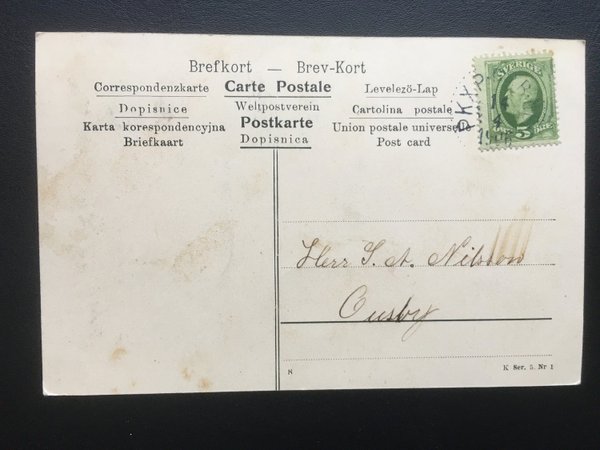 Brefkort — Brev-Kort
Correspondenzkarte Carte Postale Levelező-Lap
Dopisnice Weltpostverein Cartolina postale
Karta korespondencyjna Postkarte Union postale universel
Briefkaart Dopisnica Post card
SVERIGE
5
PKXP
4
1906
Herr S. A. Nilsson
Ousby
8
K Ser. 5. Nr 1